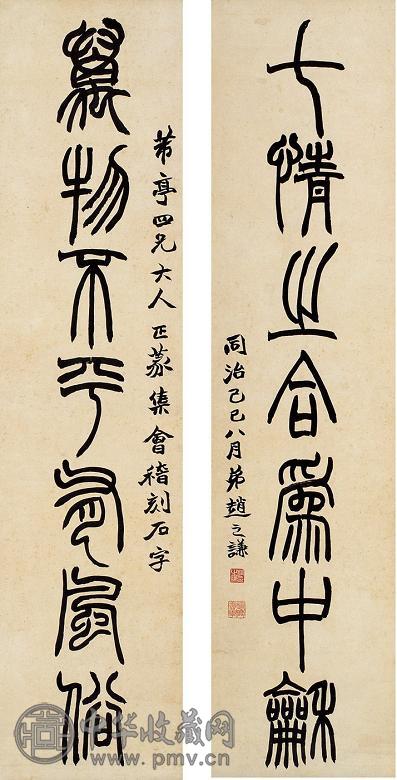 七情之合爲中龢
同治己巳八月弟趙之謙
亭四兄大人正篆集會稽刻石字
萬物不平風俗
中华收藏网
www.pmv.cn